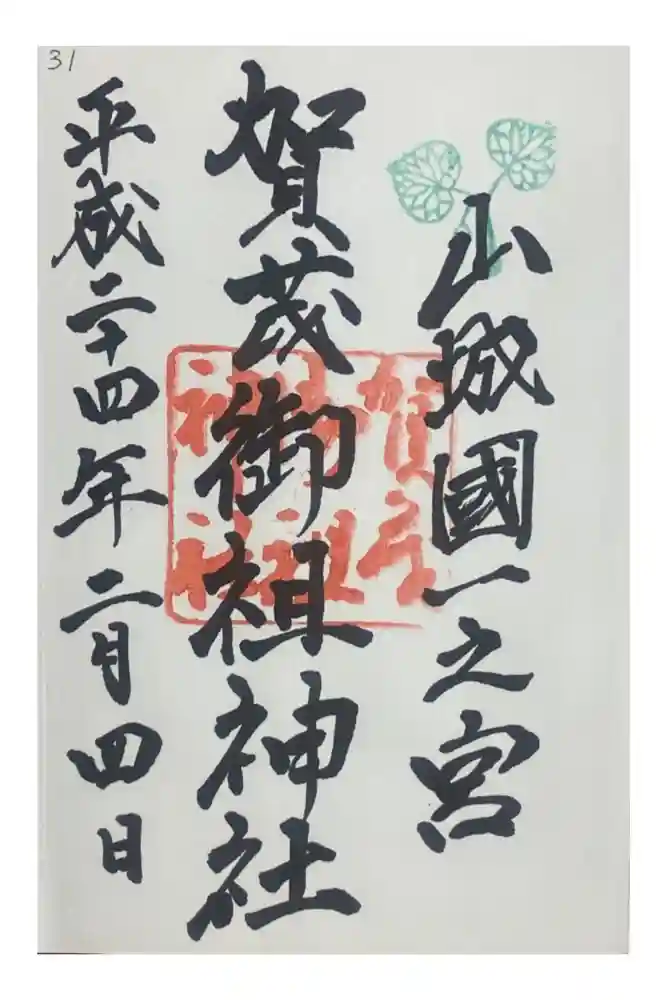 山城國一之宮
賀茂御祖神社
平成二十四年二月四日
31